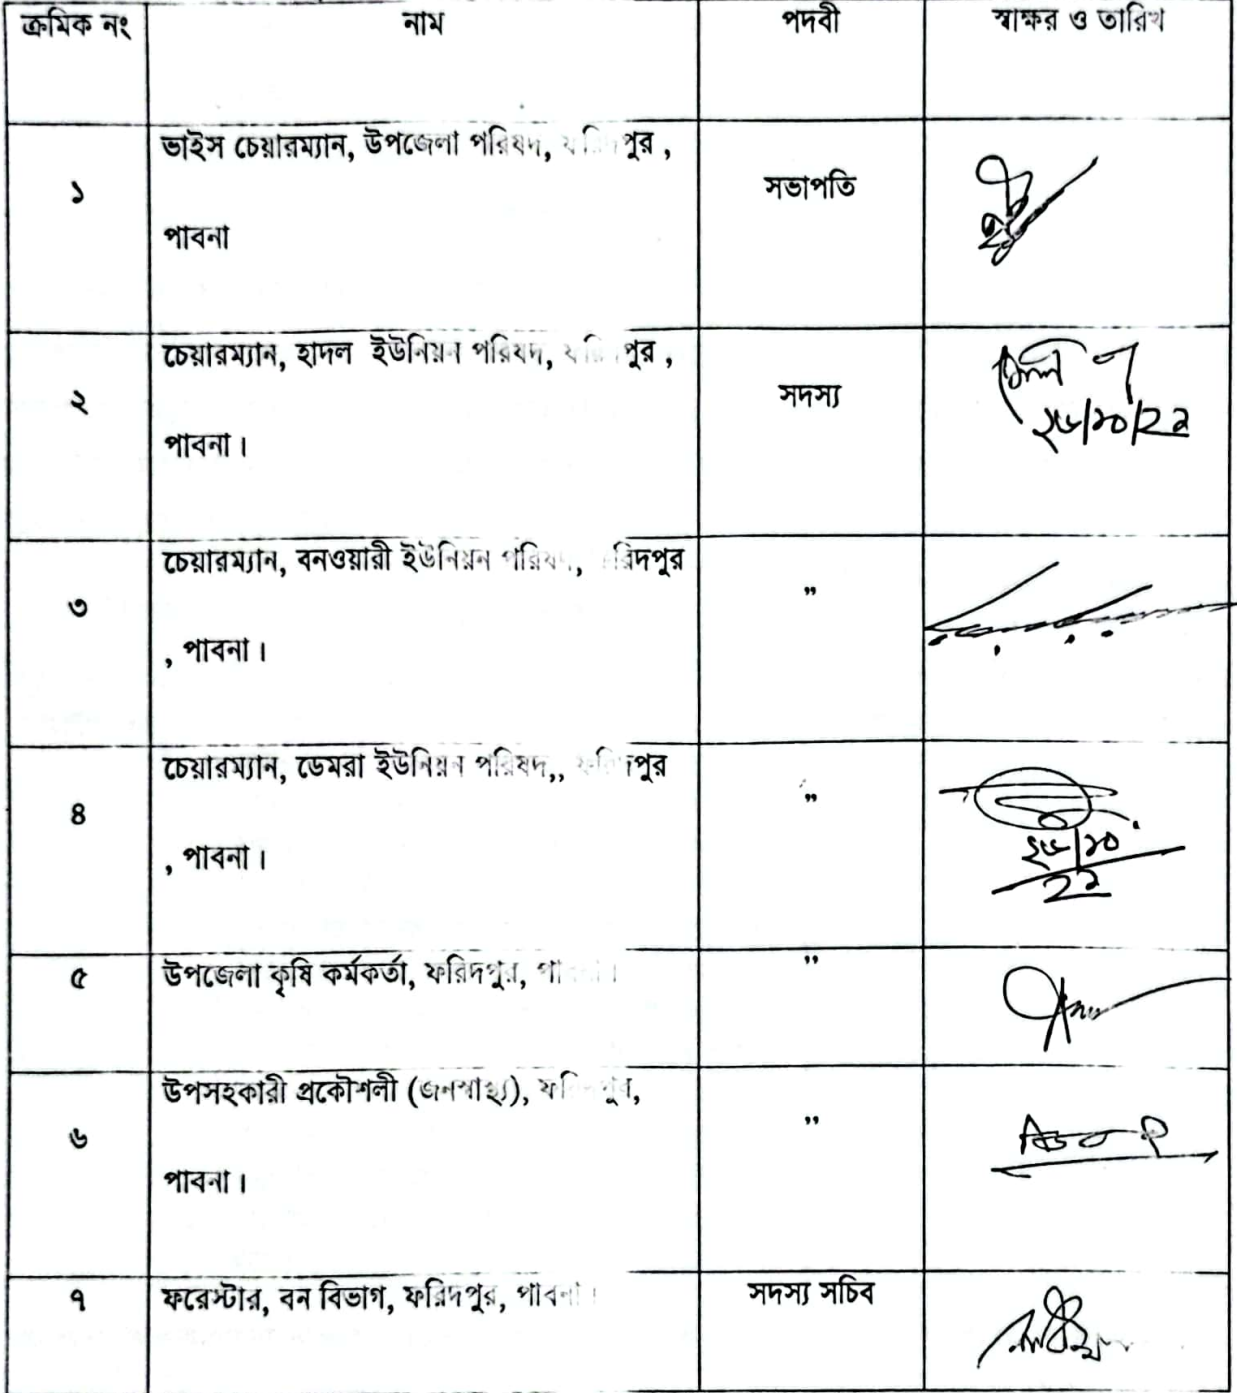 ক্রমিক নং নাম পদবী স্বাক্ষর ও তারিখ
ভাইস চেয়ারম্যান, উপজেলা পরিষদ, ফরিদপুর ,
১ সভাপতি
পাবনা
চেয়ারম্যান, হাদল ইউনিয়ন পরিষদ, ফরিদপুর ,
২ সদস্য
২৬/১০/২২
পাবনা।
চেয়ারম্যান, বনওয়ারী ইউনিয়ন পরিষদ, ফরিদপুর
৩ ”
, পাবনা।
চেয়ারম্যান, ডেমরা ইউনিয়ন পরিষদ,, ফরিদপুর
৪ ”
২৬/১০
, পাবনা।
২২
৫ উপজেলা কৃষি কর্মকর্তা, ফরিদপুর, পাবনা। ”
উপসহকারী প্রকৌশলী (জনস্বাস্থ্য), ফরিদপুর,
৬ ”
পাবনা।
৭ ফরেস্টার, বন বিভাগ, ফরিদপুর, পাবনা। সদস্য সচিব